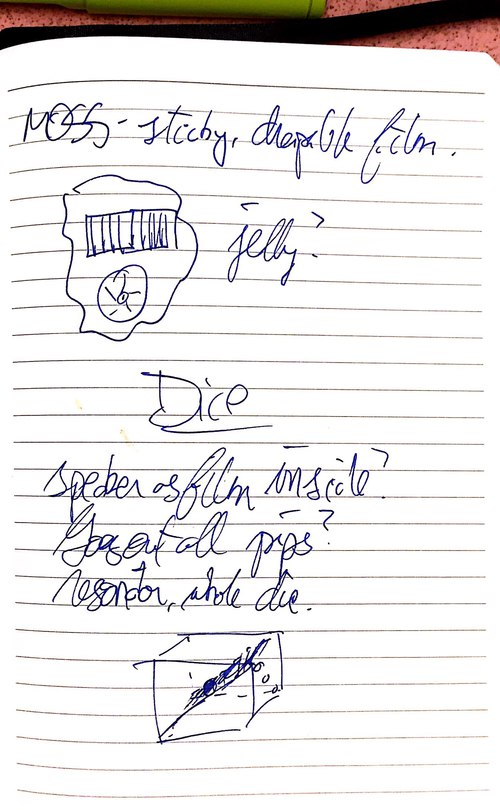 MOSS - sticky, drapable film.
jelly?
Dice
speaker as film inside?
out all pips?
resonator, whole die.